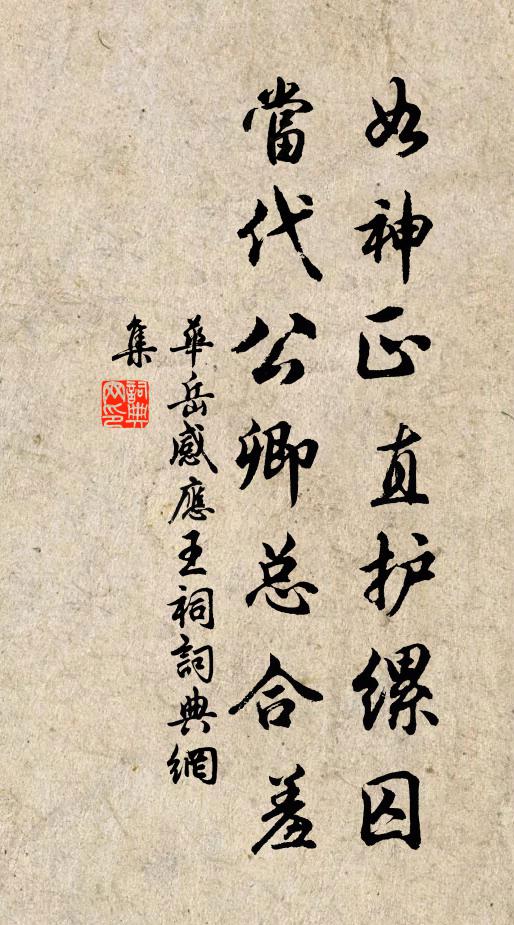 如神正直护缧囚
當代公卿总合羞
華岳感應王祠詞典網
集
詞典
网印